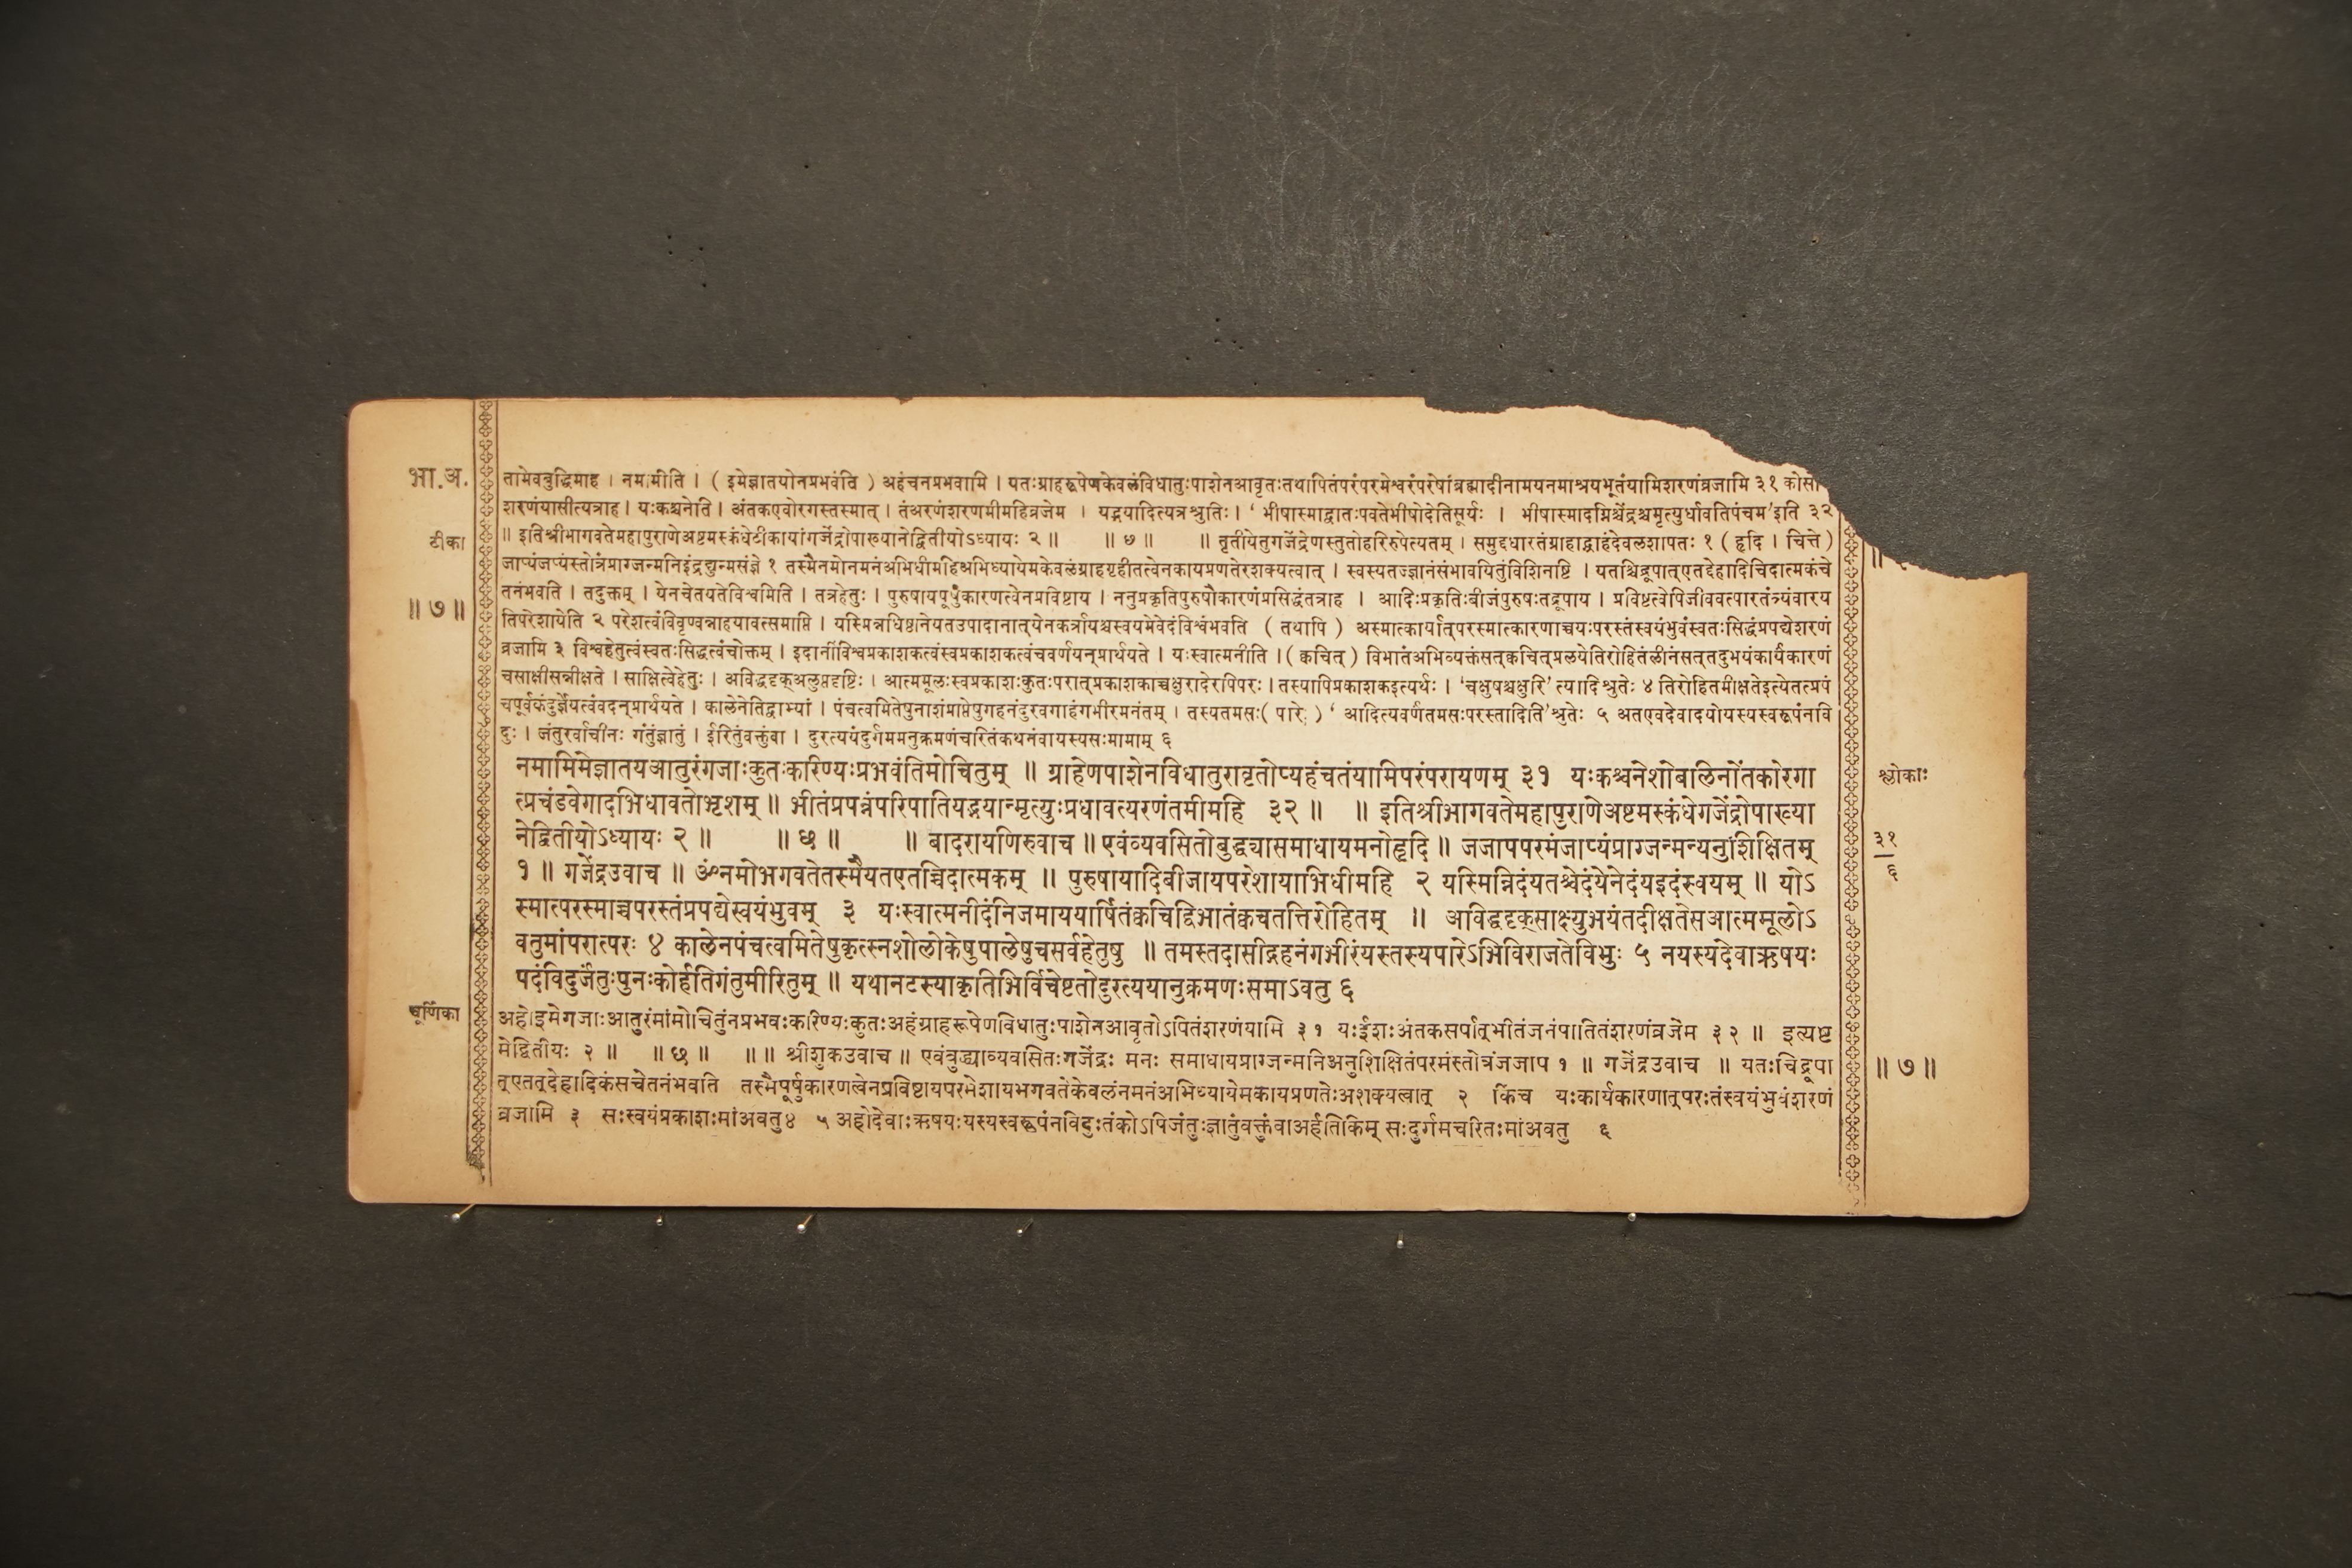 भा.अ.
तामेवबुद्धिमाह । नमामीति । ( इमेज्ञातयोनप्रभवंति ) अहंचनप्रभवामि । यतःग्राहरूपेणकेवलंविधातुःपाशेनआवृतःतथापितंपरंपरमेश्वरंपरेषांब्रह्मादीनामयनमाश्रयभूतंयामिशरणंव्रजामि ३१ कोसौ
शरणंयासीत्यत्राह । यःकश्चनेति । अंतकएवोरगस्तस्मात् । तंअरणंशरणमीमहिव्रजेम । यद्भयादित्यत्रश्रुतिः । ‘ भीषास्माद्वातःपवतेभीषोदेतिसूर्यः । भीषास्मादग्निश्चेंद्रश्चमृत्युर्धावतिपंचम’इति ३२
टीका
॥ इतिश्रीभागवतेमहापुराणेअष्टमस्कंधेटीकायांगजेंद्रोपाख्यानेद्वितीयोऽध्यायः २ ॥ ॥ ७ ॥ ॥ तृतीयेतुगजेंद्रेणस्तुतोहरिरुपेत्यतम् । समुद्दधारतंग्राहाद्ग्राहंदेवलशापतः १ ( हृदि । चित्ते )
जाप्यंजप्यंस्तोत्रंप्राग्जन्मनिइंद्रद्युन्मसंज्ञे १ तस्मैनमोनमनंअभिधीमहिअभिध्यायेमकेवलंग्राहगृहीतत्वेनकायप्रणतेरशक्यत्वात् । स्वस्यतज्ज्ञानंसंभावयितुंविशिनष्टि । यतश्चिद्रूपात्एतद्देहादिचिदात्मकंचे
॥ ७ ॥
तनंभवति । तदुक्तम् । येनचेतयतेविश्वमिति । तत्रहेतुः । पुरुषायपूर्षुकारणत्वेनप्रविष्टाय । ननुप्रकृतिपुरुषौकारणंप्रसिद्धंतत्राह । आदिःप्रकृतिःबीजंपुरुषःतद्रूपाय । प्रविष्टत्वेपिजीववत्पारतंत्र्यंवारय
तिपरेशायेति २ परेशत्वंविवृण्वन्नाहयावत्समाप्ति । यस्मिन्नधिष्ठानेयतउपादानात्येनकर्त्रायश्चस्वयमेवेदंविश्वंभवति ( तथापि ) अस्मात्कार्यात्परस्मात्कारणाच्चयःपरस्तंस्वयंभुवंस्वतःसिद्धंप्रपद्येशरणं
व्रजामि ३ विश्वहेतुत्वंस्वतःसिद्धत्वंचोक्तम् । इदानींविश्वप्रकाशकत्वंस्वप्रकाशकत्वंचवर्णयन्प्रार्थयते । यःस्वात्मनीति । ( क्वचित् ) विभातंअभिव्यक्तंसत्क्वचित्प्रलयेतिरोहितंलीनंसत्तदुभयंकार्यंकारणं
चसाक्षीसन्नीक्षते । साक्षित्वेहेतुः । अविद्धदृक्अलुप्तदृष्टिः । आत्ममूलःस्वप्रकाशःकुतःपरात्प्रकाशकाच्चक्षुरादेरपिपरः । तस्यापिप्रकाशकइत्यर्थः । ‘चक्षुषश्चक्षुरि’त्यादिश्रुतेः ४ तिरोहितमीक्षतेइत्येतत्प्रपं
चपूर्वकंदुर्ज्ञेयत्वंवदन्प्रार्थयते । कालेनेतिद्वाभ्यां । पंचत्वमितेषुनाशंप्राप्तेषुगहनंदुरवगाहंगभीरमनंतम् । तस्यतमसः( पारे ) ‘ आदित्यवर्णंतमसःपरस्तादिति’श्रुतेः ५ अतएवदेवादयोयस्यस्वरूपंनवि
दुः । जंतुरर्वाचीनः गंतुंज्ञातुं । ईरितुंवक्तुंवा । दुरत्ययंदुर्गममनुक्रमणंचरितंकथनंवायस्यसःमामाम् ६
नमामिमेज्ञातयआतुरंगजाःकुतःकरिण्यःप्रभवंतिमोचितुम् ॥ ग्राहेणपाशेनविधातुरावृतोप्यहंचतंयामिपरंपरायणम् ३१ यःकश्चनेशोबलिनोंतकोरगा
श्लोकाः
त्प्रचंडवेगादभिधावतोभृशम् ॥ भीतंप्रपन्नंपरिपातियद्भयान्मृत्युःप्रधावत्यरणंतमीमहि ३२ ॥ ॥ इतिश्रीभागवतेमहापुराणेअष्टमस्कंधेगजेंद्रोपाख्या
नेद्वितीयोऽध्यायः २ ॥ ॥ छ ॥ ॥ बादरायणिरुवाच ॥ एवंव्यवसितोबुद्ध्यासमाधायमनोहृदि ॥ जजापपरमंजाप्यंप्राग्जन्मन्यनुशिक्षितम्
३१
६
१ ॥ गजेंद्रउवाच ॥ ॐनमोभगवतेतस्मैयतएतच्चिदात्मकम् ॥ पुरुषायादिबीजायपरेशायाभिधीमहि २ यस्मिन्निदंयतश्चेदंयेनेदंयइदंस्वयम् ॥ योऽ
स्मात्परस्माच्चपरस्तंप्रपद्येस्वयंभुवम् ३ यःस्वात्मनीदंनिजमाययार्पितंक्वचिद्विभातंक्वचतत्तिरोहितम् ॥ अविद्धदृक्साक्ष्युभयंतदीक्षतेसआत्ममूलोऽ
वतुमांपरात्परः ४ कालेनपंचत्वमितेषुकृत्स्नशोलोकेषुपालेषुचसर्वहेतुषु ॥ तमस्तदासीद्गहनंगभीरंयस्तस्यपारेऽभिविराजतेविभुः ५ नयस्यदेवाऋषयः
पदंविदुर्जंतुःपुनःकोर्हतिगंतुमीरितुम् ॥ यथानटस्याकृतिभिर्विचेष्टतोदुरत्ययानुक्रमणःसमाऽवतु ६
चूर्णिका
अहोइमेगजाःआतुरंमांमोचितुंनप्रभवःकरिण्यःकुतःअहंग्राहरूपेणविधातुःपाशेनआवृतोऽपितंशरणंयामि ३१ यःईशःअंतकसर्पात्भीतंजनंपातितंशरणंव्रजेम ३२ ॥ इत्यष्ट
मेद्वितीयः २ ॥ ॥ छ ॥ ॥ ॥ श्रीशुकउवाच ॥ एवंबुद्ध्याव्यवसितःगजेंद्रः मनः समाधायप्राग्जन्मनिअनुशिक्षितंपरमंस्तोत्रंजजाप १ ॥ गजेंद्रउवाच ॥ यतःचिद्रूपा
॥ ७ ॥
त्एतत्देहादिकंसचेतनंभवति तस्मैपूर्षुकारणत्वेनप्रविष्टायपरमेशायभगवतेकेवलंनमनंअभिध्यायेमकायप्रणतेःअशक्यत्वात् २ किंच यःकार्यकारणात्परःतंस्वयंभुवंशरणं
व्रजामि ३ सःस्वयंप्रकाशःमांअवतु४ ५ अहोदेवाःऋषयःयस्यस्वरूपंनविदुःतंकोऽपिजंतुःज्ञातुंवक्तुंवाअर्हतिकिम् सःदुर्गमचरितःमांअवतु ६